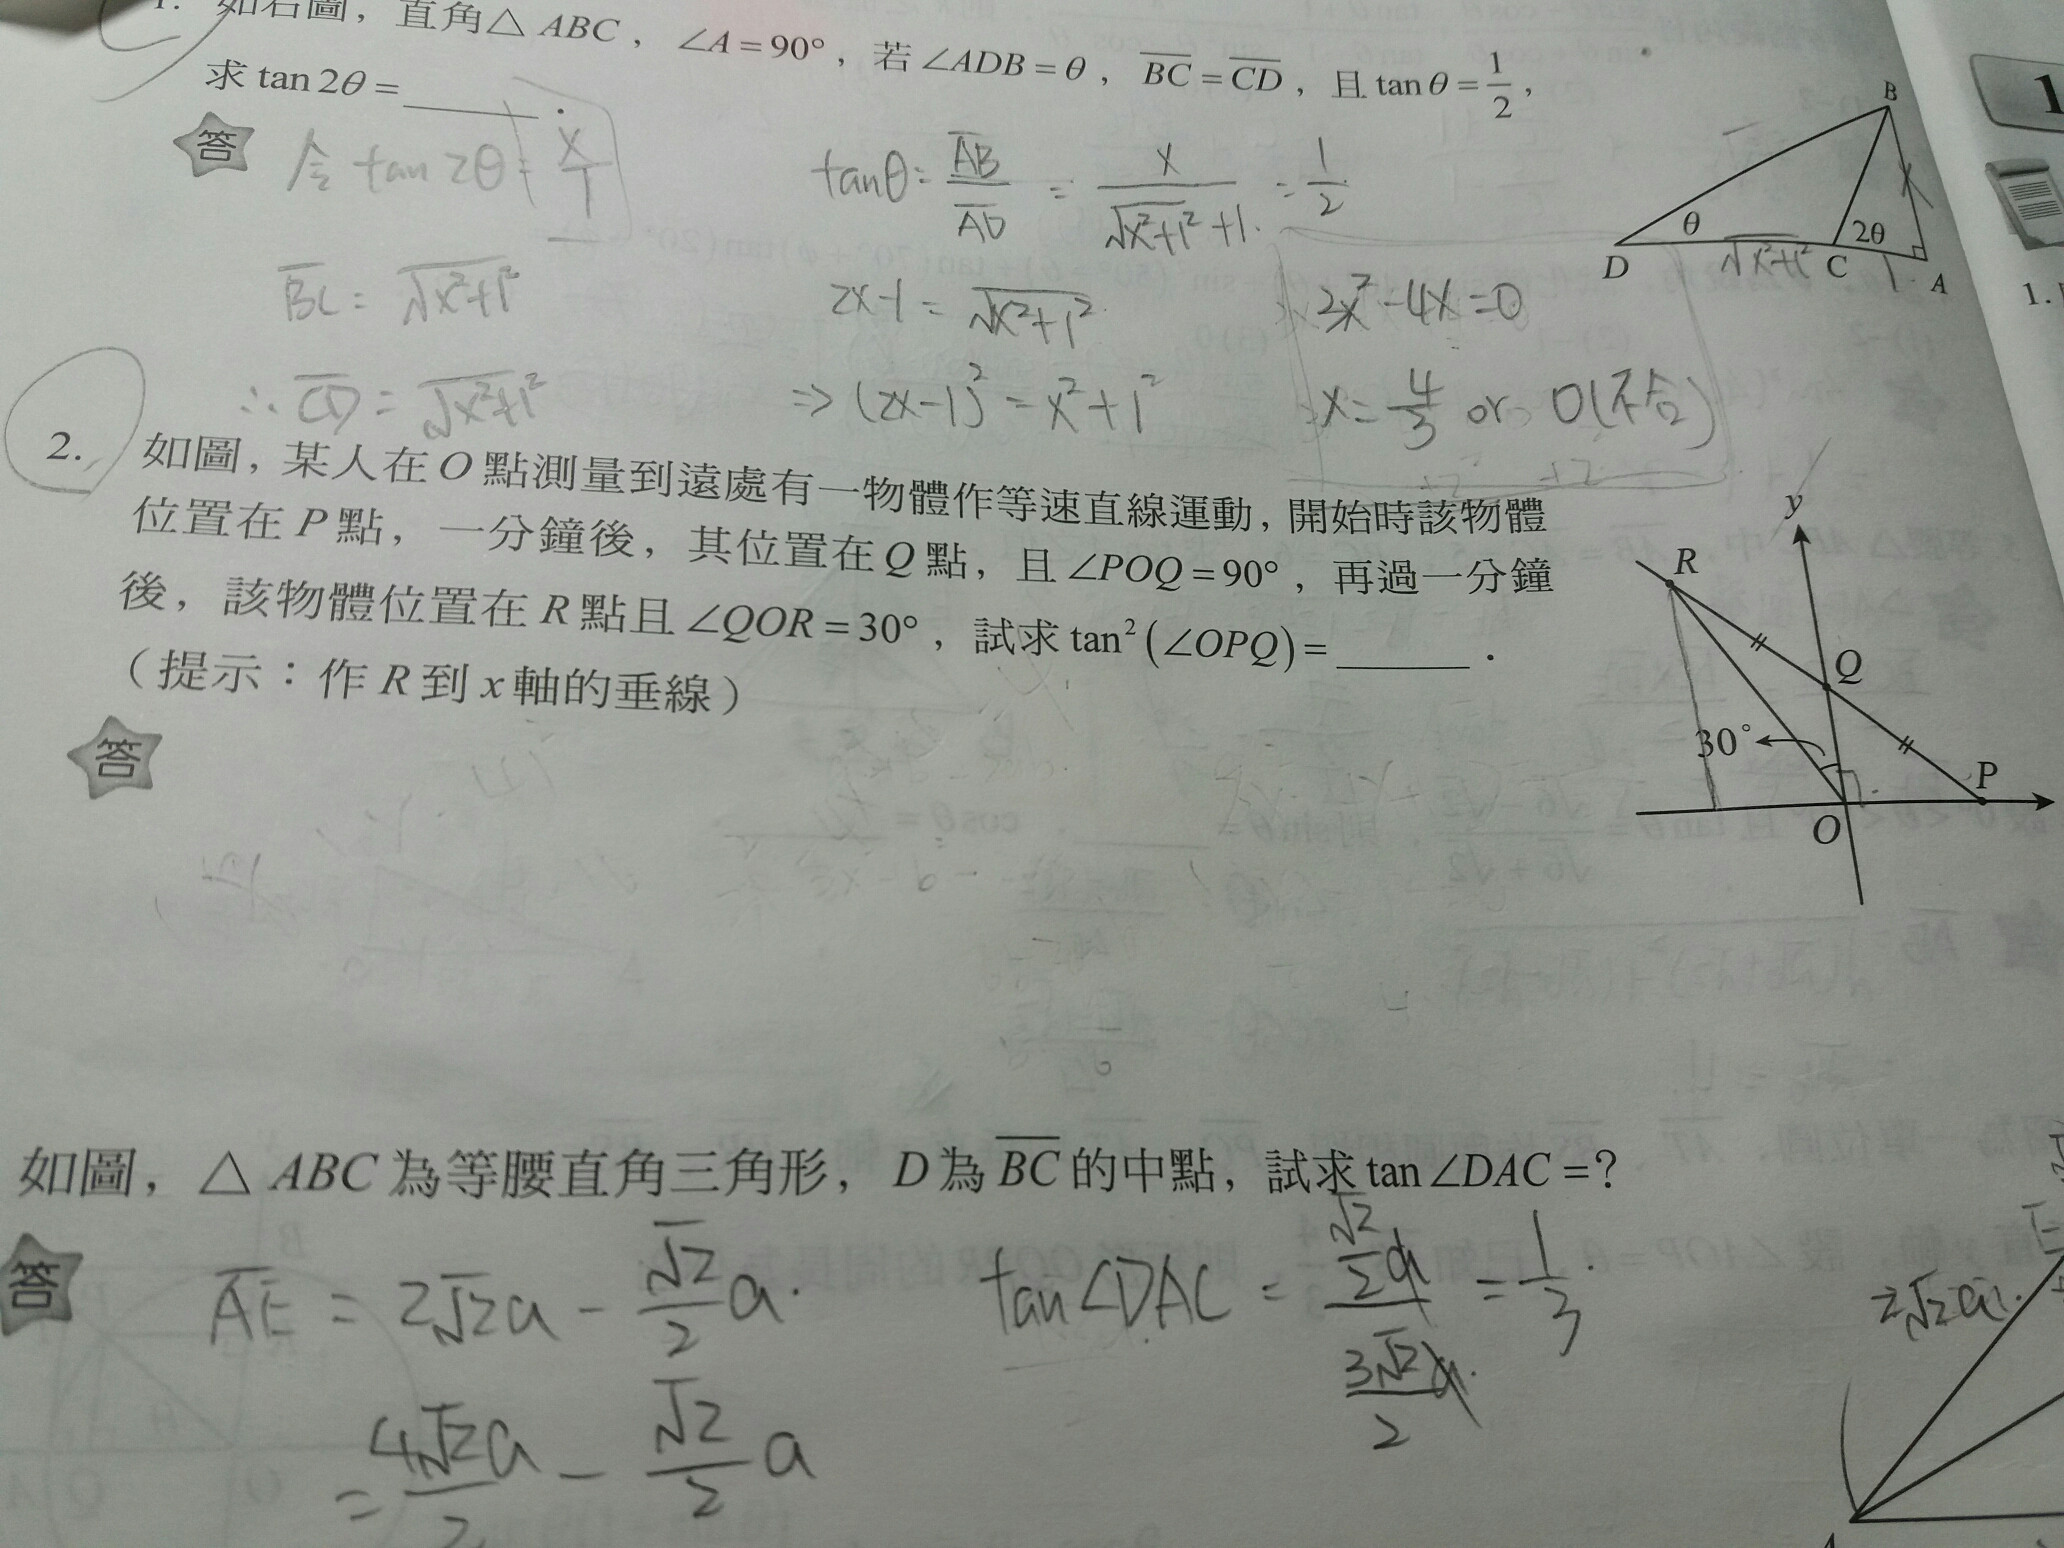 1. 如右圖，直角△ ABC，∠A=90°，若∠ADB=θ，BC=CD，且 tanθ=1/2，
求 tan2θ=______．
答
令 tan2θ= x/1
tanθ= AB/AD = x/(√(x²+1²)+1) = 1/2
B
θ
2θ
D
√(x²+1²)
C
1
A
x
BC = √(x²+1²)
2x-1 = √(x²+1²)
2x²-4x=0
∴ CD = √(x²+1²)
⇒ (2x-1)² = x²+1²
x= 4/3 or 0(不合)
2. 如圖，某人在O點測量到遠處有一物體作等速直線運動，開始時該物體
位置在P點，一分鐘後，其位置在Q點，且∠POQ=90°，再過一分鐘
後，該物體位置在R點且∠QOR=30°，試求 tan²(∠OPQ)=______．
（提示：作R到x軸的垂線）
答
y
R
Q
30°
P
O
如圖，△ ABC為等腰直角三角形，D為BC的中點，試求 tan∠DAC=?
答
AE = 2√2a - √2/2 a.
tan∠DAC = (√2/2 a)/(3√2/2 a) = 1/3.
= 4√2a/2 - √2/2 a
2√2a
A
1
1.